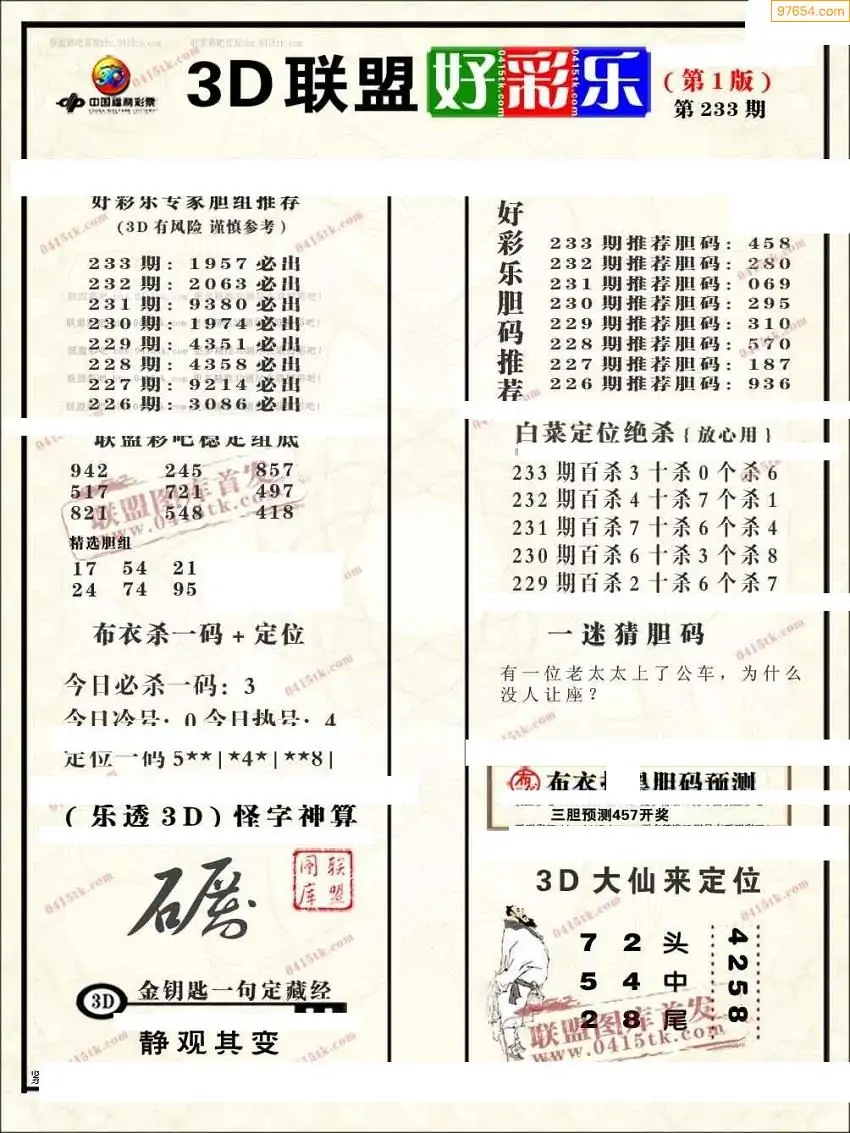 97654.com
3D联盟好彩乐
(第1版)
第233期
中国福利彩票
CHINA WELFARE LOTTERY
好彩乐专家胆组推荐
(3D有风险 谨慎参考)
233期: 1957必出
232期: 2063必出
231期: 9380必出
230期: 1974必出
229期: 4351必出
228期: 4358必出
227期: 9214必出
226期: 3086必出
联盟彩吧稳定组底
942 245 857
517 721 497
821 548 418
精选胆组
17 54 21
24 74 95
布衣杀一码+定位
今日必杀一码: 3
今日冷号: 0 今日热号: 4
定位一码 5**|*4*|**8|
(乐透3D)怪字神算
联盟图库
3D 金钥匙一句定藏经
静观其变
好彩乐胆码推荐
233期推荐胆码: 458
232期推荐胆码: 280
231期推荐胆码: 069
230期推荐胆码: 295
229期推荐胆码: 310
228期推荐胆码: 570
227期推荐胆码: 187
226期推荐胆码: 936
白菜定位绝杀{放心用}
233期百杀3十杀0个杀6
232期百杀4十杀7个杀1
231期百杀7十杀6个杀4
230期百杀6十杀3个杀8
229期百杀2十杀6个杀7
一迷猜胆码
有一位老太太上了公车，为什么
没人让座？
胆码预测
三胆预测457开奖
3D大仙来定位
7 2 头
5 4 中
2 8 尾
4258
联盟图库首发
www.0415tk.com